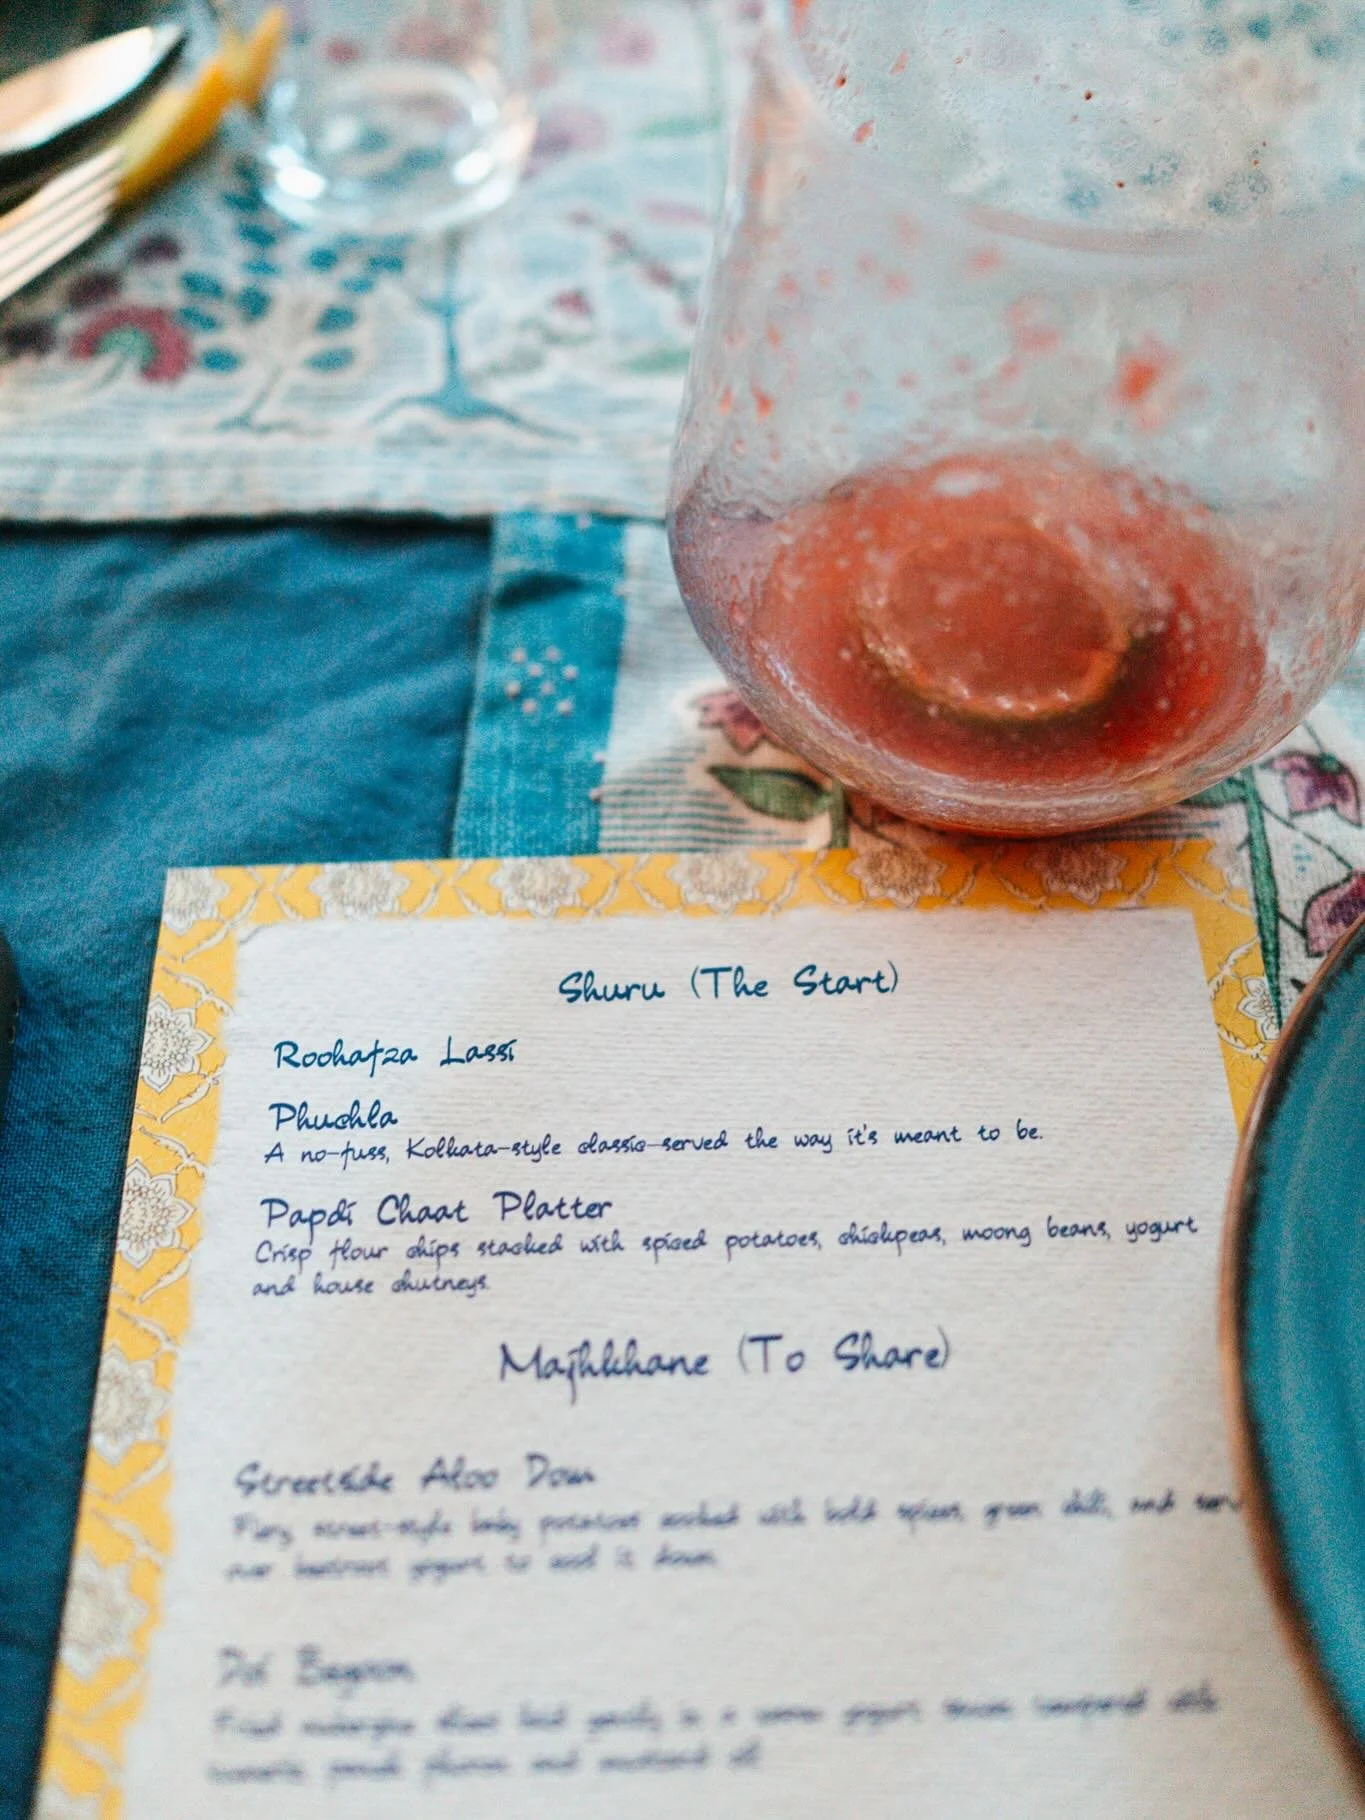 Shuru (The Start)
Roohafza Lassi
Phuchka
A no-fuss, Kolkata-style classic served the way it's meant to be.
Papdi Chaat Platter
Crisp flour chips stacked with spiced potatoes, chickpeas, moong beans, yogurt
and house chutneys.
Majhkhane (To Share)
Streetside Aloo Dom
Fiery street-style baby potatoes cooked with bold spices, green chili, and
yogurt to cool it down.
Doi Begoon
Fried aubergine slices laid gently in a yogurt tempered with
and mustard oil